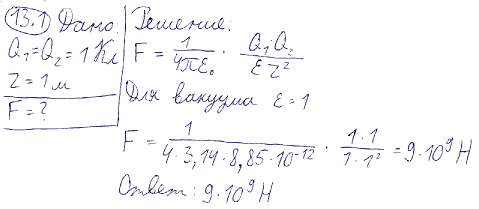 13.1 Дано:
Q₁=Q₂=1 Кл
r=1 м
F=?
Решение:
F = 1/(4πε₀) · Q₁·Q₂/(εr²)
Для вакуума ε=1
F = 1/(4·3,14·8,85·10⁻¹²) · 1·1/(1·1²) = 9·10⁹ Н
Ответ: 9·10⁹ Н